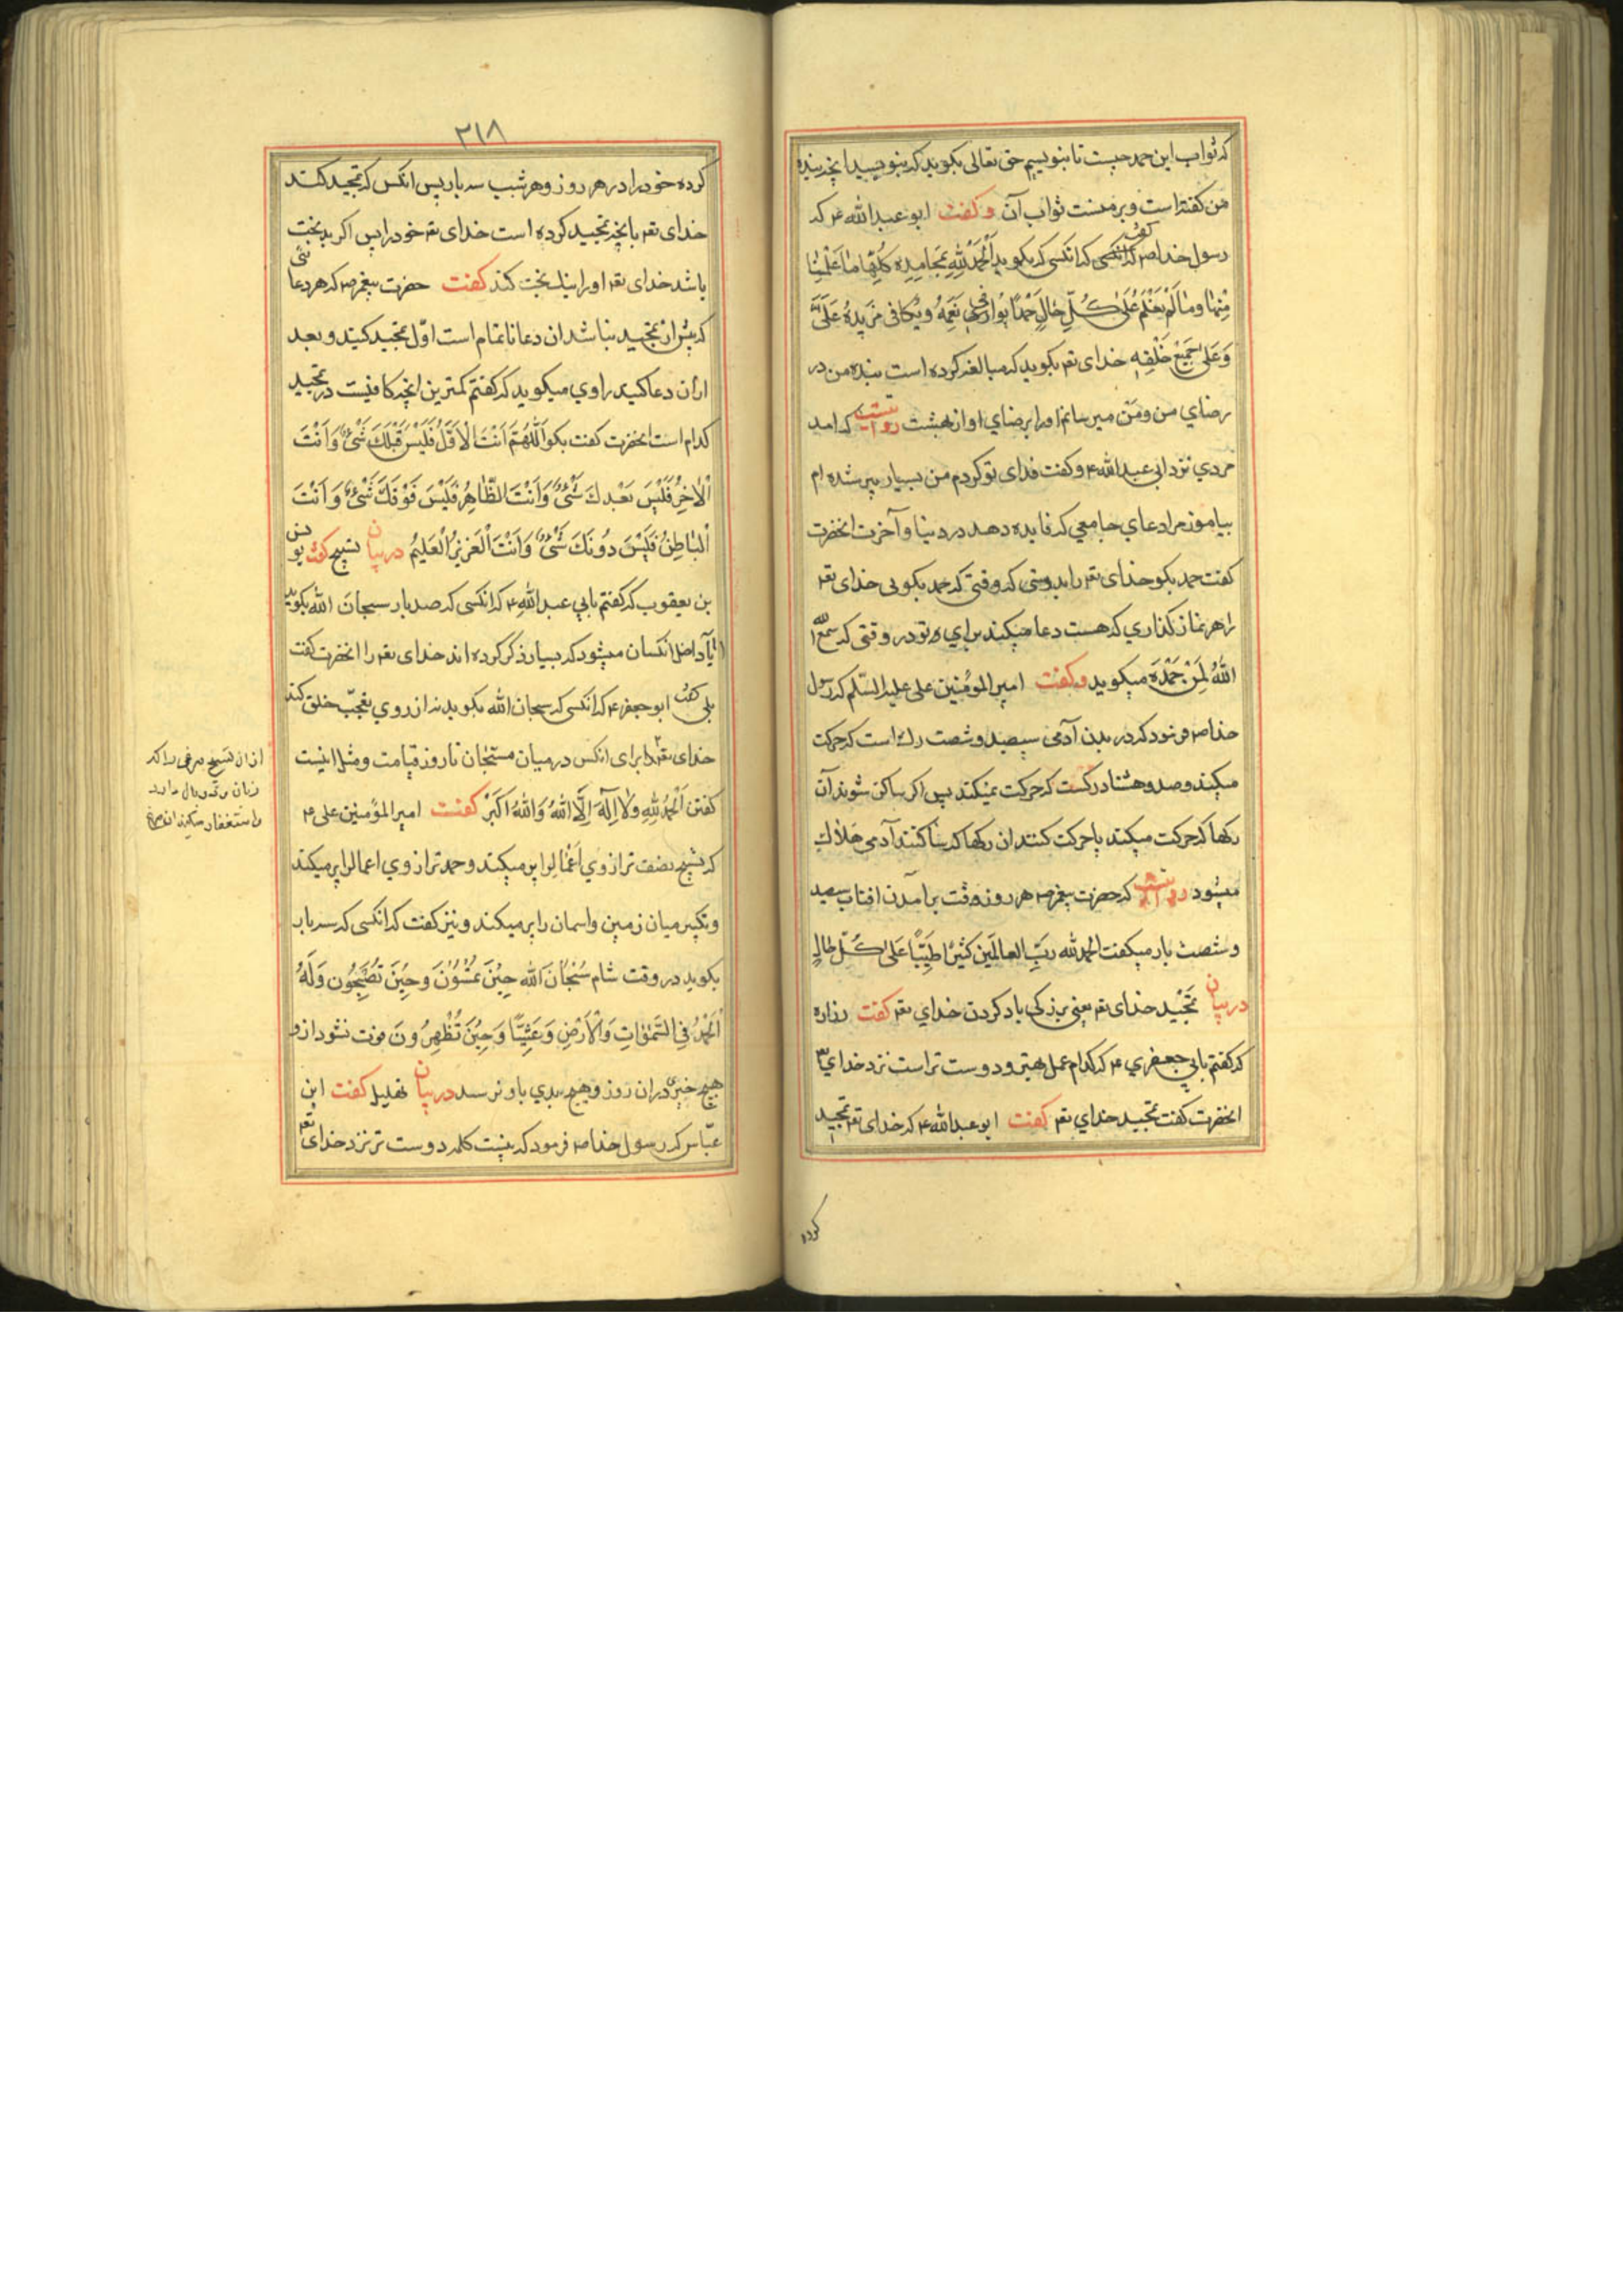 که ثواب این حمد چیست تا بنویسیم حق تعالی بکوید که بنویسید انچه بنده
من کفته است و بر منست ثواب آن و کفت ابو عبد الله ع که
رسول خدا ص کفت که انکسی که بکوید اَلْحَمْدُ لِلّٰهِ بِمَحامِدِه كُلِّهٰا مٰا عَلِمْنٰا
مِنْهٰا وَمٰا لَمْ نَعْلَمْ عَلىٰ كُلِّ حٰالٍ حَمْدًا يُوازي نِعَمَهُ وَيُكافى مَزيدَهُ عَلَيَّ
وَعَلىٰ جَميعِ خَلْقِهِ خدای تعه بکوید که مبالغه کرده است بنده من در
رضاي من و من میرسانم او را برضاي او از بهشت روایتست که امد
مردي نزد ابی عبد الله ع و کفت فدای تو کردم من بسیار پیر شده ام
بیاموز مرا دعاي جامعي که فایده دهد در دنیا و آخرت انحضرت
کفت حمد بکو خدای تعه را بدرستی که وقتی که حمد بکویی خدای تعه
را هر نماز کذاري که هست دعا میکند براي تو در وقتی که سمع
اللهُ لِمَنْ حَمِدَه میکوید و کفت امیر المؤمنین علی علیه السّلم که رسول
خدا ص فرمود که در بدن آدمی سیصد و شصت رك است که حرکت
میکند و صد و هشتاد رکست که حرکت نمیکند پس اکر ساکن شوند آن
رکها که حرکت میکند یا حرکت کنند ان رکها که ساکنند آدمی هلاك
میشود روایتست که حضرت پیغمبر ص هر روز وقت برآمدن افتاب سیصد
و شصت بار میکفت الحمد لله رَبِّ العالَمين كَثيرًا طَيِّبًا عَلىٰ كُلِّ حٰالٍ
در بیان تَمْجيد خدای تعه یعنی بزرکی یاد کردن خداي تعه کفت زراره
که کفتم بابي جعفري ع که کدام عمل بهتر و دوست تر است نزد خداي تعه
انحضرت کفت تمجید خداي تعه کفت ابو عبد الله ع که خدای تعه تمجید
کرده
۲۱۸
کرده خود را در هر روز و هر شب سه بار پس انکس که تمجید کند
خدای تعه بانچه تمجید کرده است خدای تعه خود را پس اکر بدبخت
باشد خدای تعه او را نیك بخت کند کفت حضرت پیغمبر ص که هر دعائی
که پیش از تمجید نباشد ان دعا ناتمام است اوّل تمجید کنید و بعد
از ان دعا کنید راوي میکوید که کفتم کمترین انچه کافیست در تمجید
کدام است انحضرت کفت بکو اَللّٰهُمَّ اَنْتَ الْاَوَّلُ فَلَيْسَ قَبْلَكَ شَيْئٌ وَاَنْتَ
اْلاٰخِرُ فَلَيْسَ بَعْدَكَ شَيْئٌ وَاَنْتَ الظّٰاهِرُ فَلَيْسَ فَوْقَكَ شَيْئٌ وَاَنْتَ
اْلبٰاطِنُ فَلَيْسَ دُونَكَ شَيْئٌ وَاَنْتَ اْلعَزيزُ اْلعَليمُ در بیان تسبیح کفت یونس
بن یعقوب که کفتم بابي عبد الله ع که انکسی که صد بار سبحان الله بکوید
آیا داخل انکسان میشود که بسیار ذکر کرده اند خدای تعه را انحضرت کفت
بلی کفت ابو جعفر ع که انکسی که سبحان الله بکوید نه از روي تعجّب خلق کند
خدای تعه برای انکس درمیان مستحبان تا روز قیامت و مثل اینست
کفتن اَلْحَمْدُ لِلّٰهِ وَلٰا اِلٰهَ اِلَّا اللهُ وَاللهُ اَکبَرُ کفت امیر المؤمنین علی ع
که تسبیح نصف ترازوي اعمال را پر میکند و حمد ترازوي اعمال را پر میکند
و تکبیر میان زمین و اسمان را پر میکند و نیز کفت که انکسی که سه بار
بکوید در وقت شام سُبْحٰانَ الله حينَ تُمْسُونَ وَحينَ تُصْبِحُون وَلَهُ
اْلحَمْدُ فِى السَّمٰوٰاتِ وَاْلاَرْضِ وَعَشِيًّا وَحينَ تُظْهِرُونَ فوت نشود ازو
هیچ خیره دران روز و هیچ بدي باو نرسد در بیان تهلیل کفت ابن
عبّاس که رسول خدا ص فرمود که نیست کلمه دوست تر نزد خدای تعه
از ان تسبیح مرغی را که
زبان و دو بال دارد
و استغفار میکند